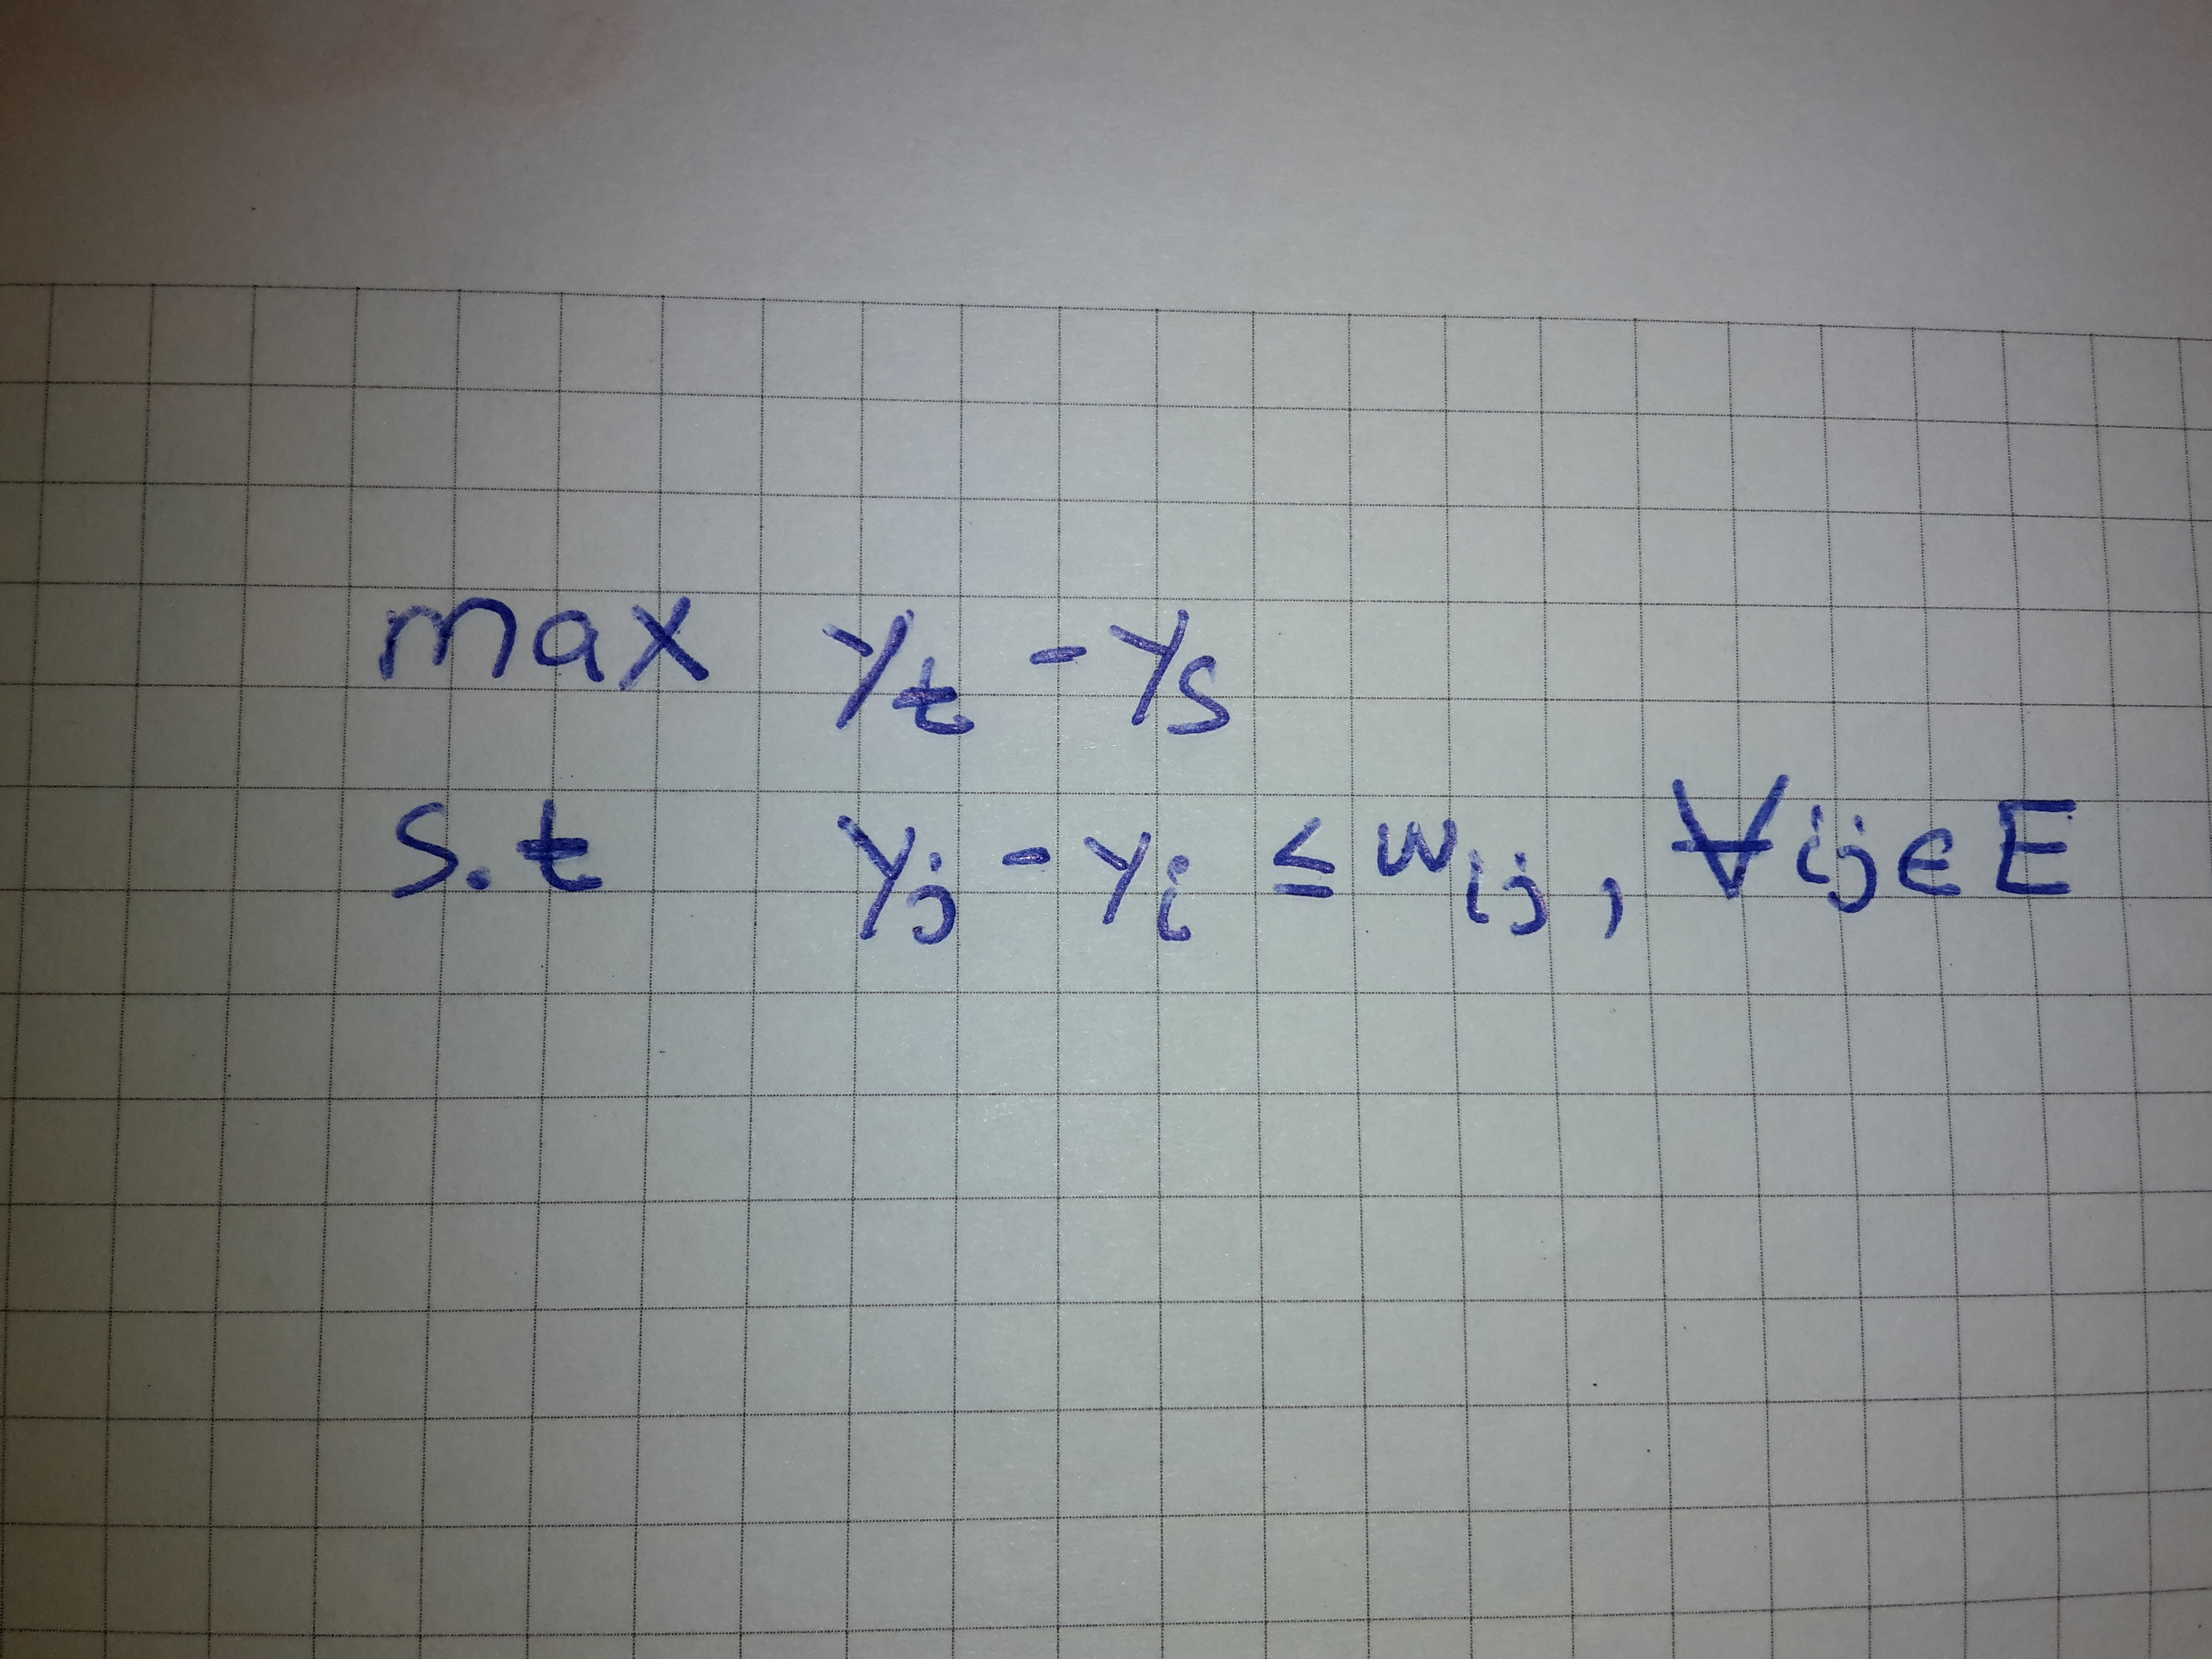 max y_t - y_s
s.t y_j - y_i ≤ w_ij, ∀ij∈E